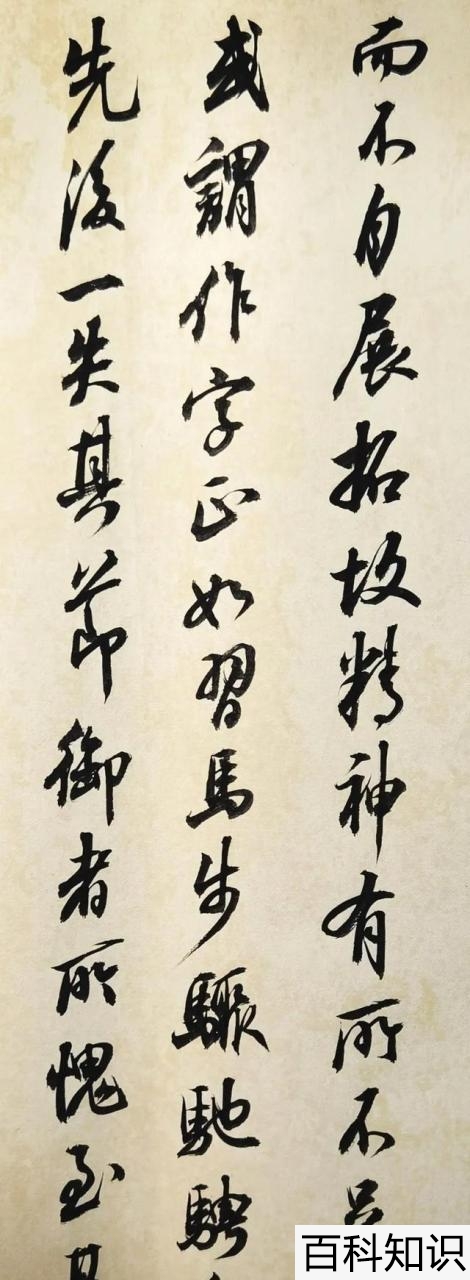 而不自展拓故精神有所不
或謂作字正如習馬步驟馳騁
先後一失其節御者所愧至其
百科知识